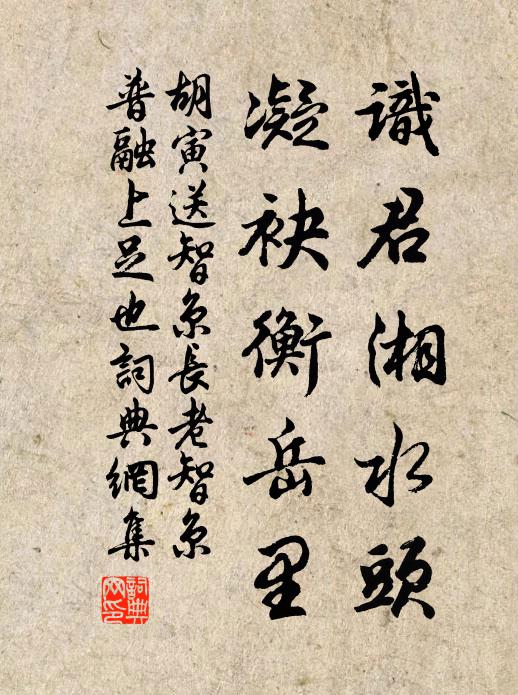 識君湘水頭
凝袂衡岳里
胡寅送智京長老智京
普融上足也詞典網集
詞典网印